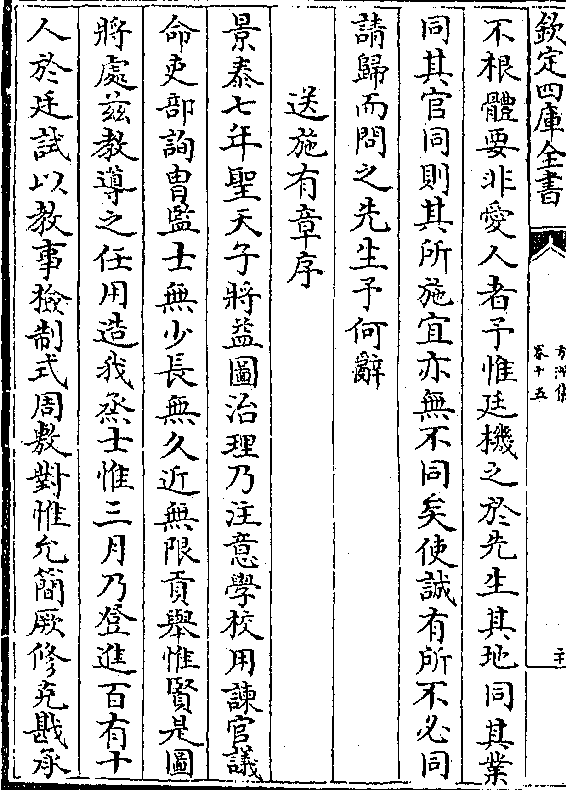 欽定四庫全書
方洲集
卷十五
二十
不根體要非愛人者予惟廷機之於先生其地同其業
同其官同則其所施宜亦無不同矣使誠有所不必同
請歸而問之先生予何辭
送施有章序
景泰七年聖天子將益圖治理乃注意學校用諫官議
命吏部詢胄監士無少長無久近無限貢舉惟賢是圖
將處兹教導之任用造我烝士惟三月乃登進百有十
人於廷試以教事撿制式周敷對惟允簡厥修克戡承